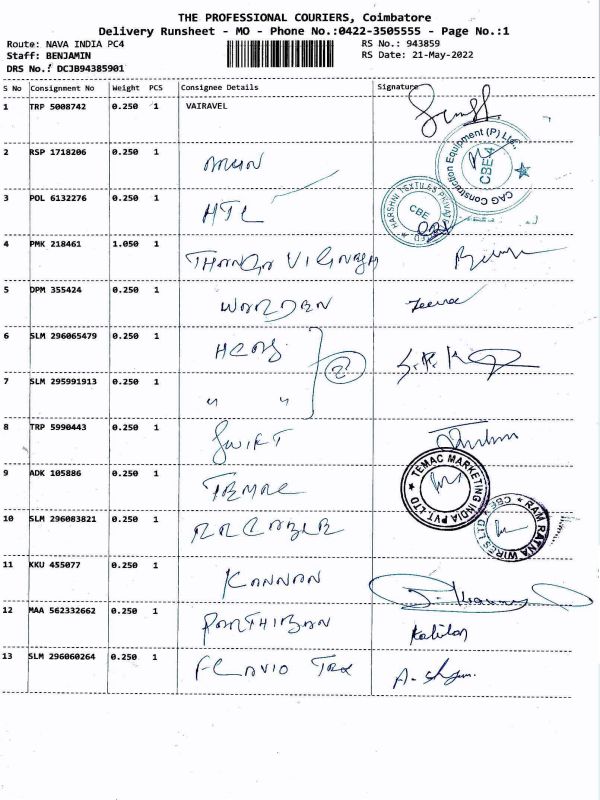 THE PROFESSIONAL COURIERS, Coimbatore
Delivery Runsheet - MO - Phone No.:0422-3505555 - Page No.:1
Route: NAVA INDIA PC4 RS No.: 943859
Staff: BENJAMIN RS Date: 21-May-2022
DRS No.: DCJB94385901
S No Consignment No Weight PCS Consignee Details Signature
1 TRP 5008742 0.250 1 VAIRAVEL
2 RSP 1718206 0.250 1 ARUN
CAG Construction Equipment (P) Ltd. CBE4
3 POL 6132276 0.250 1 HTL
HARSHNI TEXTILES PRIVATE LIMITED CBE
4 PMK 218461 1.050 1 THANGA VIGNESH
5 DPM 355424 0.250 1 WARDEN
6 SLM 296065479 0.250 1
2
7 SLM 295991913 0.250 1 " "
8 TRP 5990443 0.250 1 SWIFT
9 ADK 105886 0.250 1 TEMAC
TEMAC MARKETING INDIA PVT. LTD
10 SLM 296083821 0.250 1 RR CABLE
RAM RATNA WIRES LTD CBE
11 KKU 455077 0.250 1 KANNAN
12 MAA 562332662 0.250 1 PARTHIBAN
13 SLM 296060264 0.250 1 FLAVIO Tex